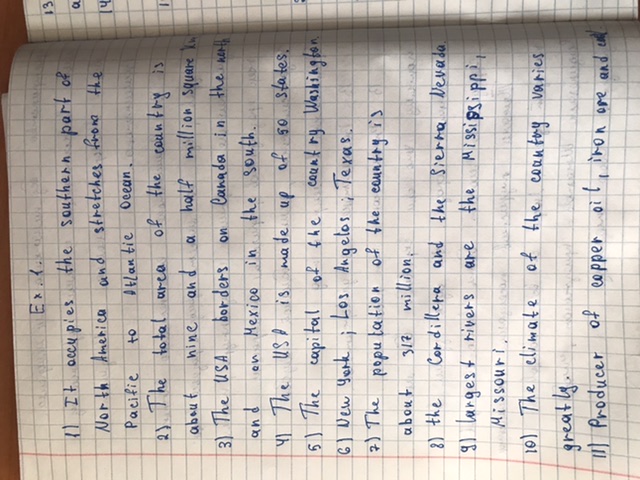 Ex. 1
1) It occupies the southern part of
North America and stretches from the
Pacific to Atlantic Ocean.
2) The total area of the country is
about nine and a half million square km
3) The USA borders on Canada in the north
and on Mexico in the south.
4) The USA is made up of 50 states.
5) The capital of the country Washington
6) New York ; Los Angelos ; Texas.
7) The population of the country is
about 317 million.
8) the Cordillera and the Sierra Nevada
9) largest rivers are the Missisippi,
Missouri.
10) The climate of the country varies
greatly.
11) Producer of copper oil, iron ore and coal
13
14